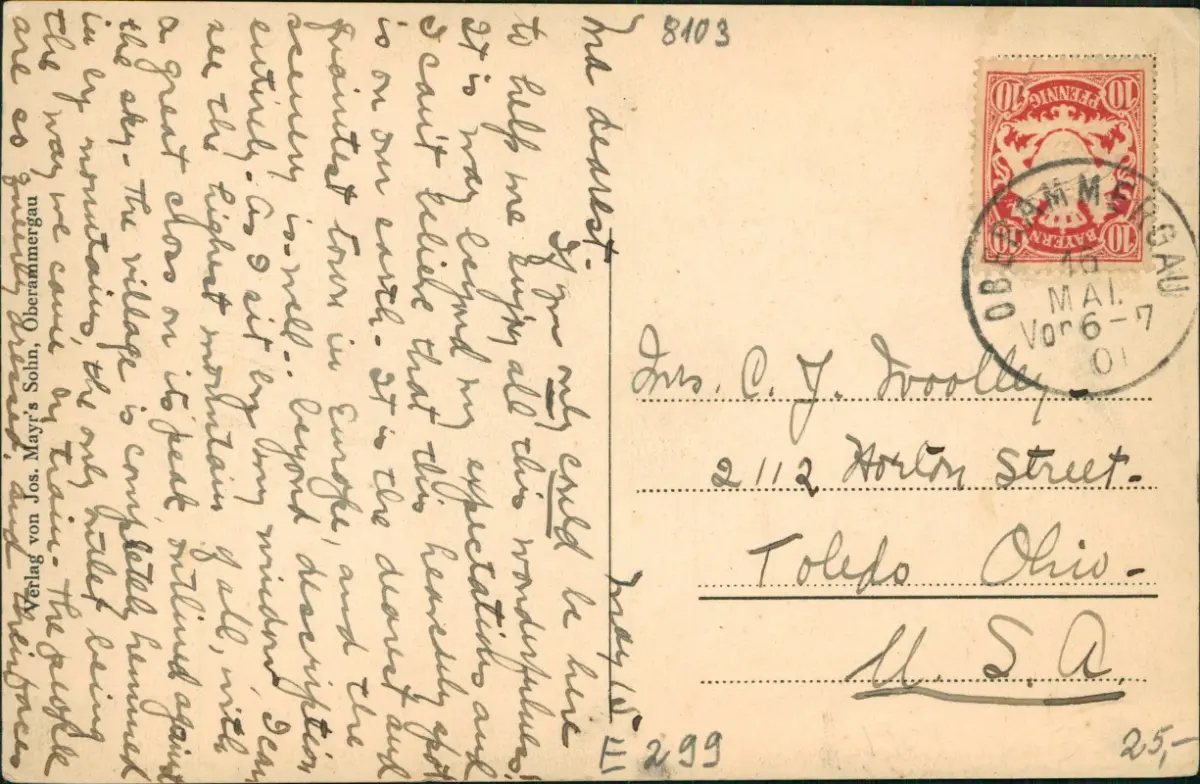 8103
May 15
Ma dearest.
If you only could be here
to help me enjoy all this wonderfulness!
It is way beyond my expectations and
I can't believe that this heavenly spot
is on our earth. It is the dearest and
quaintest town in Europe, and the
scenery is - well - beyond description
entirely. As I sit by my window I can
see the highest mountain of all, with
a great cross on its peak outlined against
the sky. The village is completely hemmed
in by mountains, the only outlet being
the way we came by train. The people
are so queerly dressed, and their faces
Verlag von Jos. Mayr's Sohn, Oberammergau
10 10
PFENNIG
BAYERN
10 10
OBERAMMERGAU
MAI.
Vor 6-7
01
Mrs. C. J. Woolley
2112 Horton Street.
Toledo Ohio.
U. S. A.
E 299
25,-